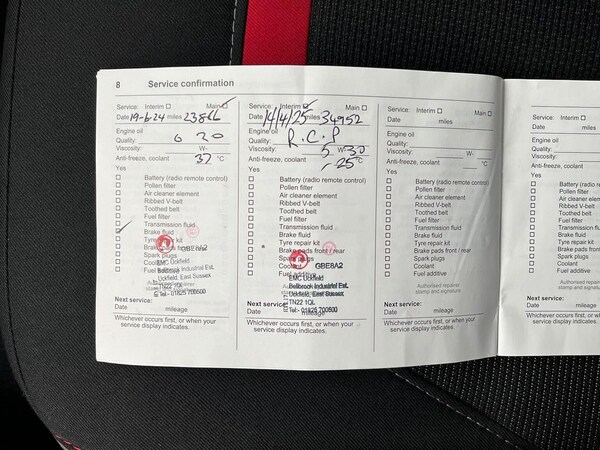 8 Service confirmation
Service: Interim Main
Date 19-6-24 miles 23866
Engine oil
Quality:
Viscosity: 0 W- 20
Anti-freeze, coolant 37 °C
Yes
Battery (radio remote control)
Pollen filter
Air cleaner element
Ribbed V-belt
Toothed belt
Fuel filter
Transmission fluid
Brake fluid
Tyre repair kit
Brake pads front / rear
Spark plugs
Coolant
Fuel additive
GBE8A2
EMC Uckfield
Bellbrook Industrial Est.
Uckfield, East Sussex
TN22 1QL
Tel - 01825 700500
Next service:
Date mileage
Whichever occurs first, or when your
service display indicates.
Service: Interim Main
Date 14/4/25 miles 34952
Engine oil
Quality: R.C.P
Viscosity: 5 W-30
Anti-freeze, coolant -25°C
Yes
Battery (radio remote control)
Pollen filter
Air cleaner element
Ribbed V-belt
Toothed belt
Fuel filter
Transmission fluid
Brake fluid
Tyre repair kit
Brake pads front / rear
Spark plugs
Coolant
Fuel additive
GBE8A2
EMC Uckfield
Bellbrook Industrial Est.
Uckfield, East Sussex
TN22 1QL
Tel - 01825 700500
Next service:
Date mileage
Whichever occurs first, or when your
service display indicates.
Service: Interim Main
Date miles
Engine oil
Quality:
Viscosity: W-
Anti-freeze, coolant °C
Yes
Battery (radio remote control)
Pollen filter
Air cleaner element
Ribbed V-belt
Toothed belt
Fuel filter
Transmission fluid
Brake fluid
Tyre repair kit
Brake pads front / rear
Spark plugs
Coolant
Fuel additive
Authorised repairer
stamp and signature
Next service:
Date mileage
Whichever occurs first, or when your
service display indicates.
Service: Interim
Date
Engine oil
Quality:
Viscosity:
Anti-freeze, coolant
Yes
Next service:
Date
Whichever occurs
service display